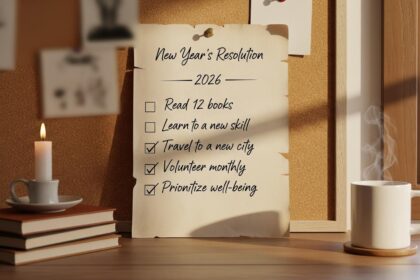 New Year's Resolution
2026
Read 12 books
Learn to a new skill
Travel to a new city
Volunteer monthly
Prioritize well-being